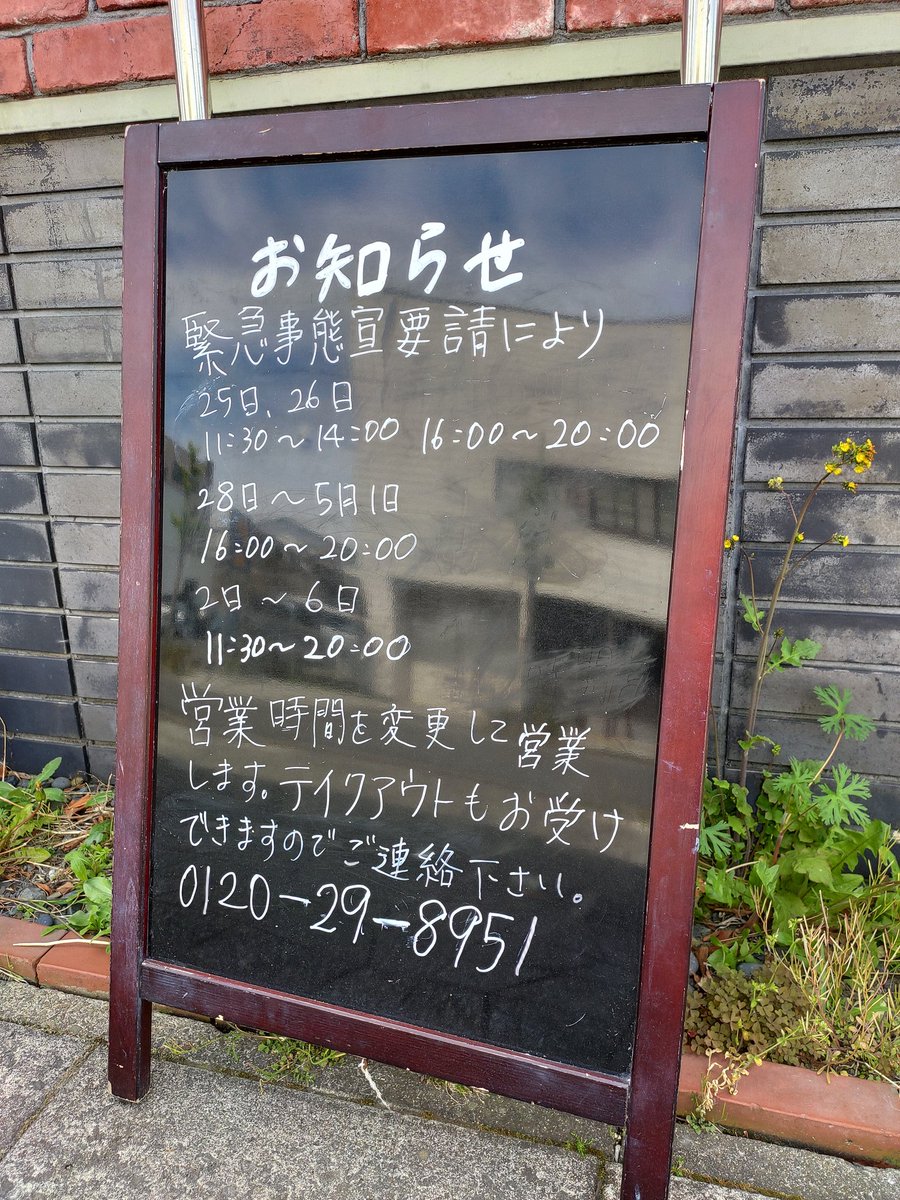 お知らせ
緊急事態宣要請により
25日、26日
11:30～14:00 16:00～20:00
28日～5月1日
16:00～20:00
2日～6日
11:30～20:00
営業時間を変更して営業
します。テイクアウトもお受け
できますのでご連絡下さい。
0120-29-8951